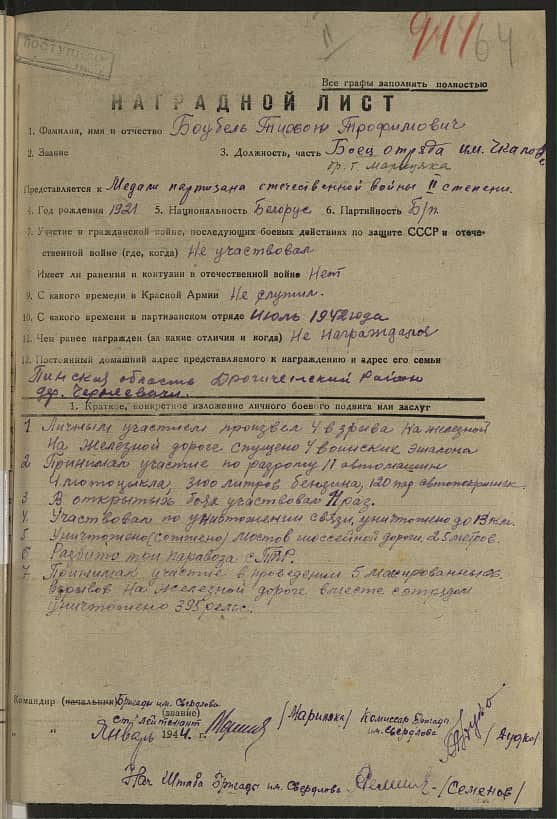 ПОСТУПИЛО
II
944 64
Все графы заполнять полностью
НАГРАДНОЙ ЛИСТ
1. Фамилия, имя и отчество Боубель Тихон Трофимович
2. Звание 3. Должность, часть Боец отряда им. Чкалова
бр. т. Мариняка
Представляется к Медали партизана отечественной войны II степени.
4. Год рождения 1921 5. Национальность Белорус 6. Партийность Б/п
7. Участие в гражданской войне, последующих боевых действиях по защите СССР и отече-
ственной войне (где, когда) Не участвовал
8. Имеет ли ранения и контузии в отечественной войне Нет
9. С какого времени в Красной Армии Не служил.
10. С какого времени в партизанском отряде Июль 1942 года
11. Чем ранее награжден (за какие отличия и когда) Не награждался
12. Постоянный домашний адрес представляемого к награждению и адрес его семьи
Пинская область Дрогиченский Район
дер.
1. Краткое, конкретное изложение личного боевого подвига или заслуг
1 Личным участием произвел 4 взрыва На железной
На железной дороге спущено 4 воинских эшалона
2 Принимал участие по разгрому 11 автомашин
4 мотоцыкла, 3100 литров бензина, 120 пар автопокришек.
3 В открытых боях участвовал 11 раз.
4. Участвовал по уничтожении связи, уничтожено до 13 клм.
5 Уничтожено (сожжено) мостов шоссейной дороги, 25 метров.
6 Разбито три паравоза с ПТР.
7 Принимал участие в проведении 5 массированных
взрывов На железной дороге вместе с отрядом
уничтожено 395 рельс.
Командир (начальник) Бригады им. Свердлова
(звание)
ст. лейтенант
" " Январь 1944 г. /Мариняка/ Комиссар Бригады
им. Свердлова /Дудко/
Нач Штаба Бригады им. Свердлова /Семенов/